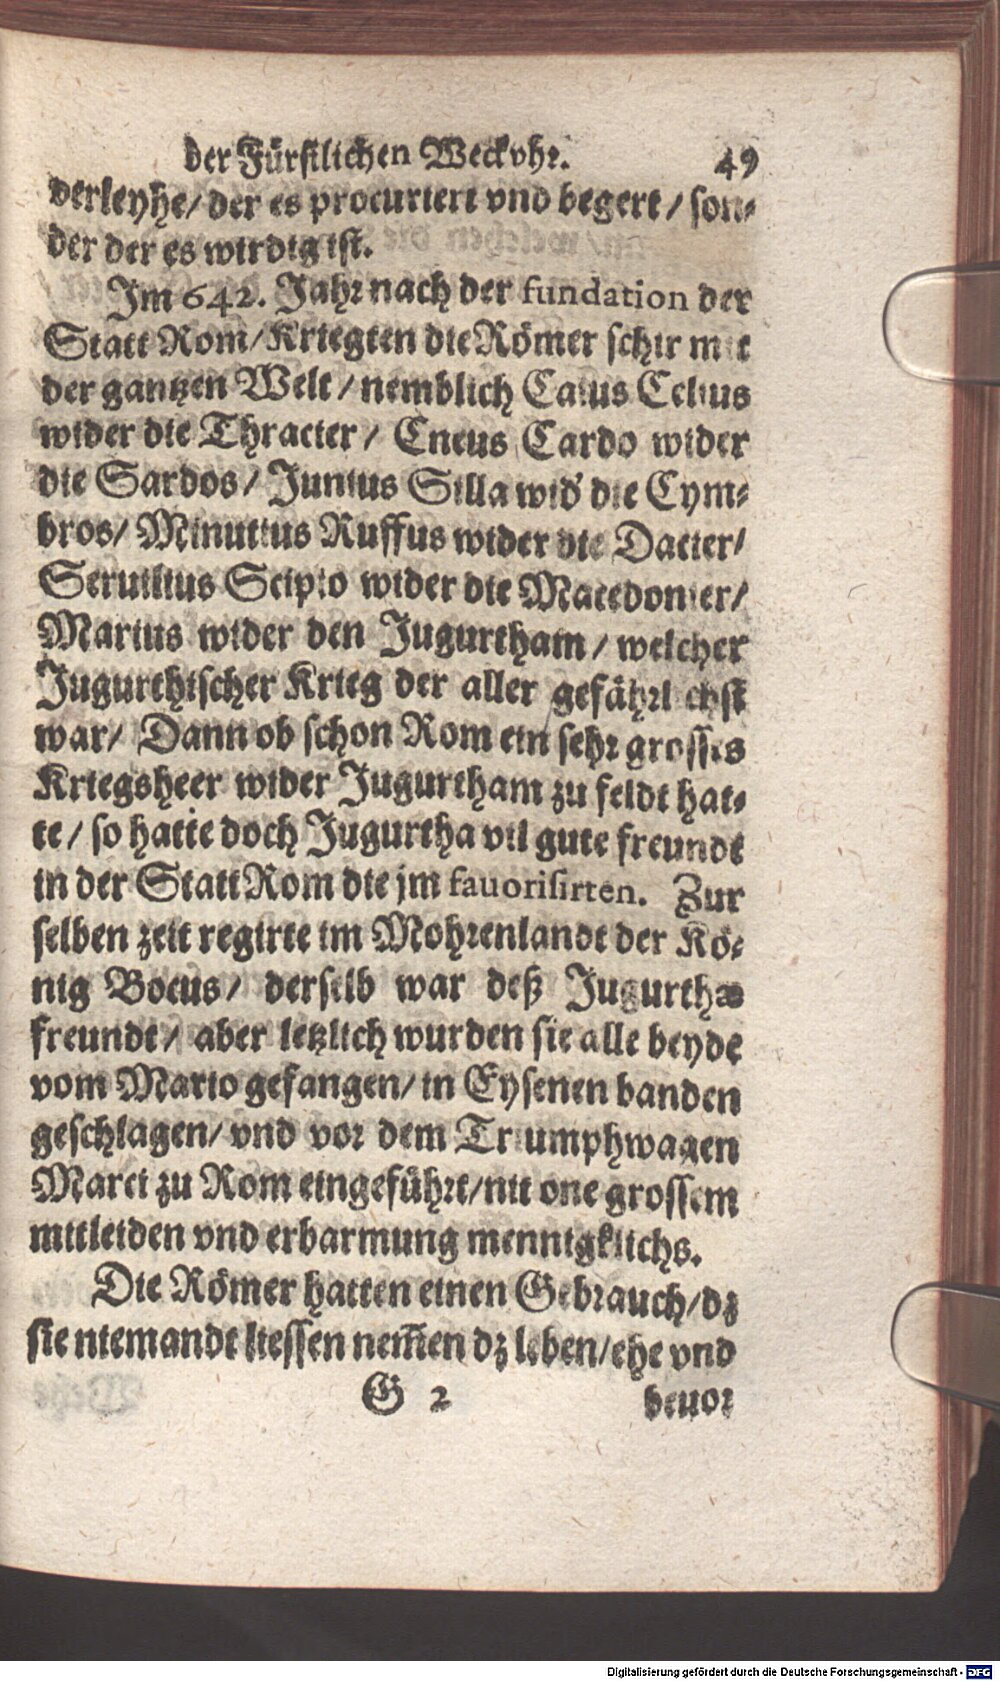 der Fürstlichen Weckvhr. 49
derleyhe/ der es procuriert vnd begert / son-
der der es wirdig ist.
Im 642. Jahr nach der fundation der
Statt Rom/ Kriegten die Römer schir mit
der gantzen Welt / nemblich Caius Celius
wider die Thracier / Cneus Cardo wider
die Sardos / Junius Silla wid' die Cym-
bros/ Minutius Ruffus wider die Dacier/
Seruilius Scipio wider die Macedonier/
Marius wider den Jugurtham / welcher
Jugurthischer Krieg der aller gefährlichst
war/ Dann ob schon Rom ein sehr grosses
Kriegsheer wider Jugurtham zu feldt hat-
te / so hatte doch Jugurtha vil gute freundt
in der Statt Rom die jm fauorisirten. Zur
selben zeit regirte im Mohrenlandt der Kö-
nig Bocus/ derselb war deß Jugurthæ
freundt/ aber letzlich wurden sie alle beyde
vom Mario gefangen/ in Eysenen banden
geschlagen/ vnd vor dem Triumphwagen
Marci zu Rom eingeführt/ nit one grossem
mitleiden vnd erbarmung menniglichs.
Die Römer hatten einen Gebrauch/ dz
sie niemandt liessen nem̄en dz leben/ ehe vnd
G 2 beuor
Digitalisierung gefördert durch die Deutsche Forschungsgemeinschaft - DFG